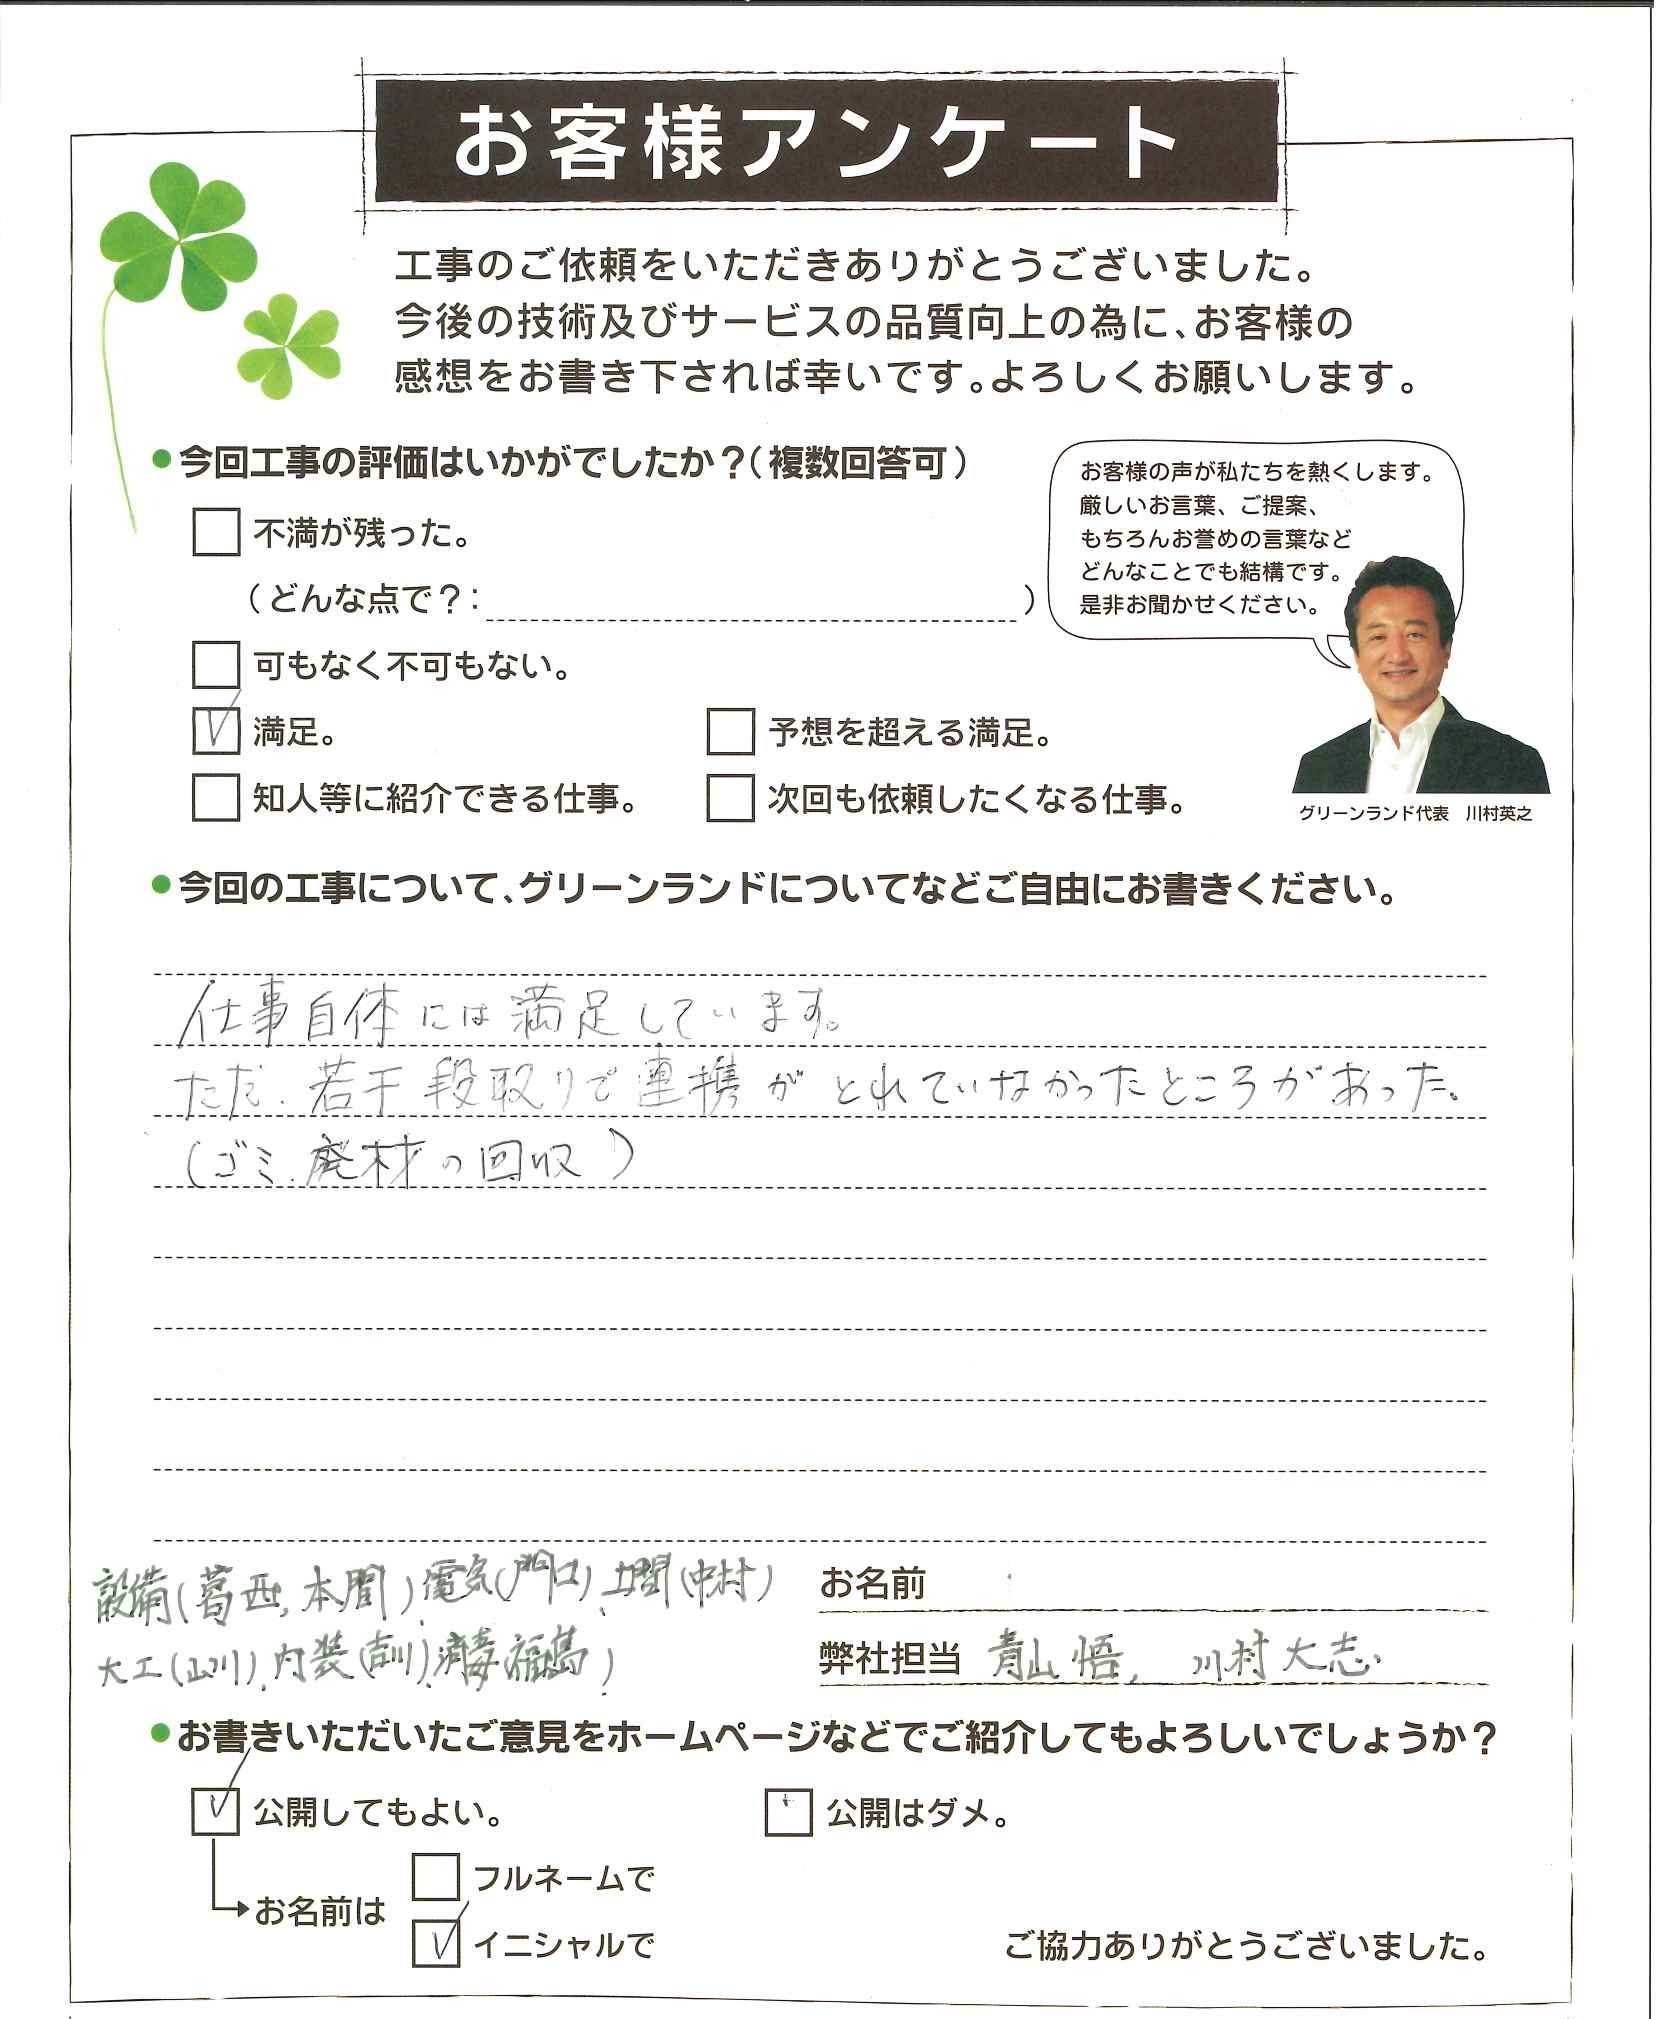 お客様アンケート
工事のご依頼をいただきありがとうございました。
今後の技術及びサービスの品質向上の為に、お客様の
感想をお書き下されば幸いです。よろしくお願いします。
●今回工事の評価はいかがでしたか？（複数回答可）
お客様の声が私たちを熱くします。
厳しいお言葉、ご提案、
もちろんお誉めの言葉など
どんなことでも結構です。
是非お聞かせください。
不満が残った。
（どんな点で？：　）
可もなく不可もない。
満足。
予想を超える満足。
知人等に紹介できる仕事。
次回も依頼したくなる仕事。
グリーンランド代表　川村英之
●今回の工事について、グリーンランドについてなどご自由にお書きください。
仕事自体には満足しています。
ただ、若干段取りで連携がとれていなかったところがあった。
（ゴミ、廃材の回収）
設備(葛西,本間),電気(門口),土間(中村)
大工(山川),内装(吉川),消毒(福島)
お名前
弊社担当 青山 悟, 川村大志
●お書きいただいたご意見をホームページなどでご紹介してもよろしいでしょうか？
公開してもよい。
公開はダメ。
お名前は
フルネームで
イニシャルで
ご協力ありがとうございました。